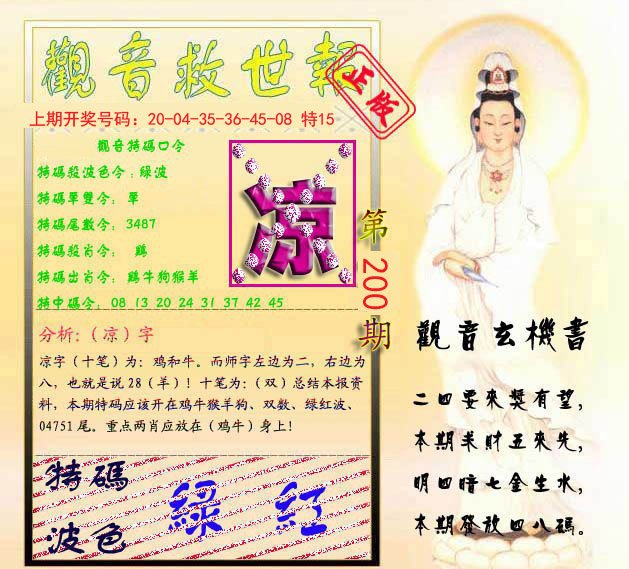 觀音救世報
正版
上期开奖号码：20-04-35-36-45-08 特15
觀音特碼口令
特碼殺波色令：綠波
特碼單雙令： 單
特碼尾數令： 3487
特碼殺肖令： 鷄
特碼出肖令： 鷄牛狗猴羊
特中碼令： 08 13 20 24 31 37 42 45
凉
第200期
分析：（凉）字
凉字（十笔）为：鸡和牛。而师字左边为二，右边为
八，也就是说28（羊）！十笔为：（双）总结本报资
料，本期特码应该开在鸡牛猴羊狗、双数、绿红波、
04751尾。重点两肖应放在（鸡牛）身上！
特碼
波色
綠 紅
觀音玄機書
二四要來獎有望，
本期羊財五來先，
明四暗七金生水，
本期發放四八碼。